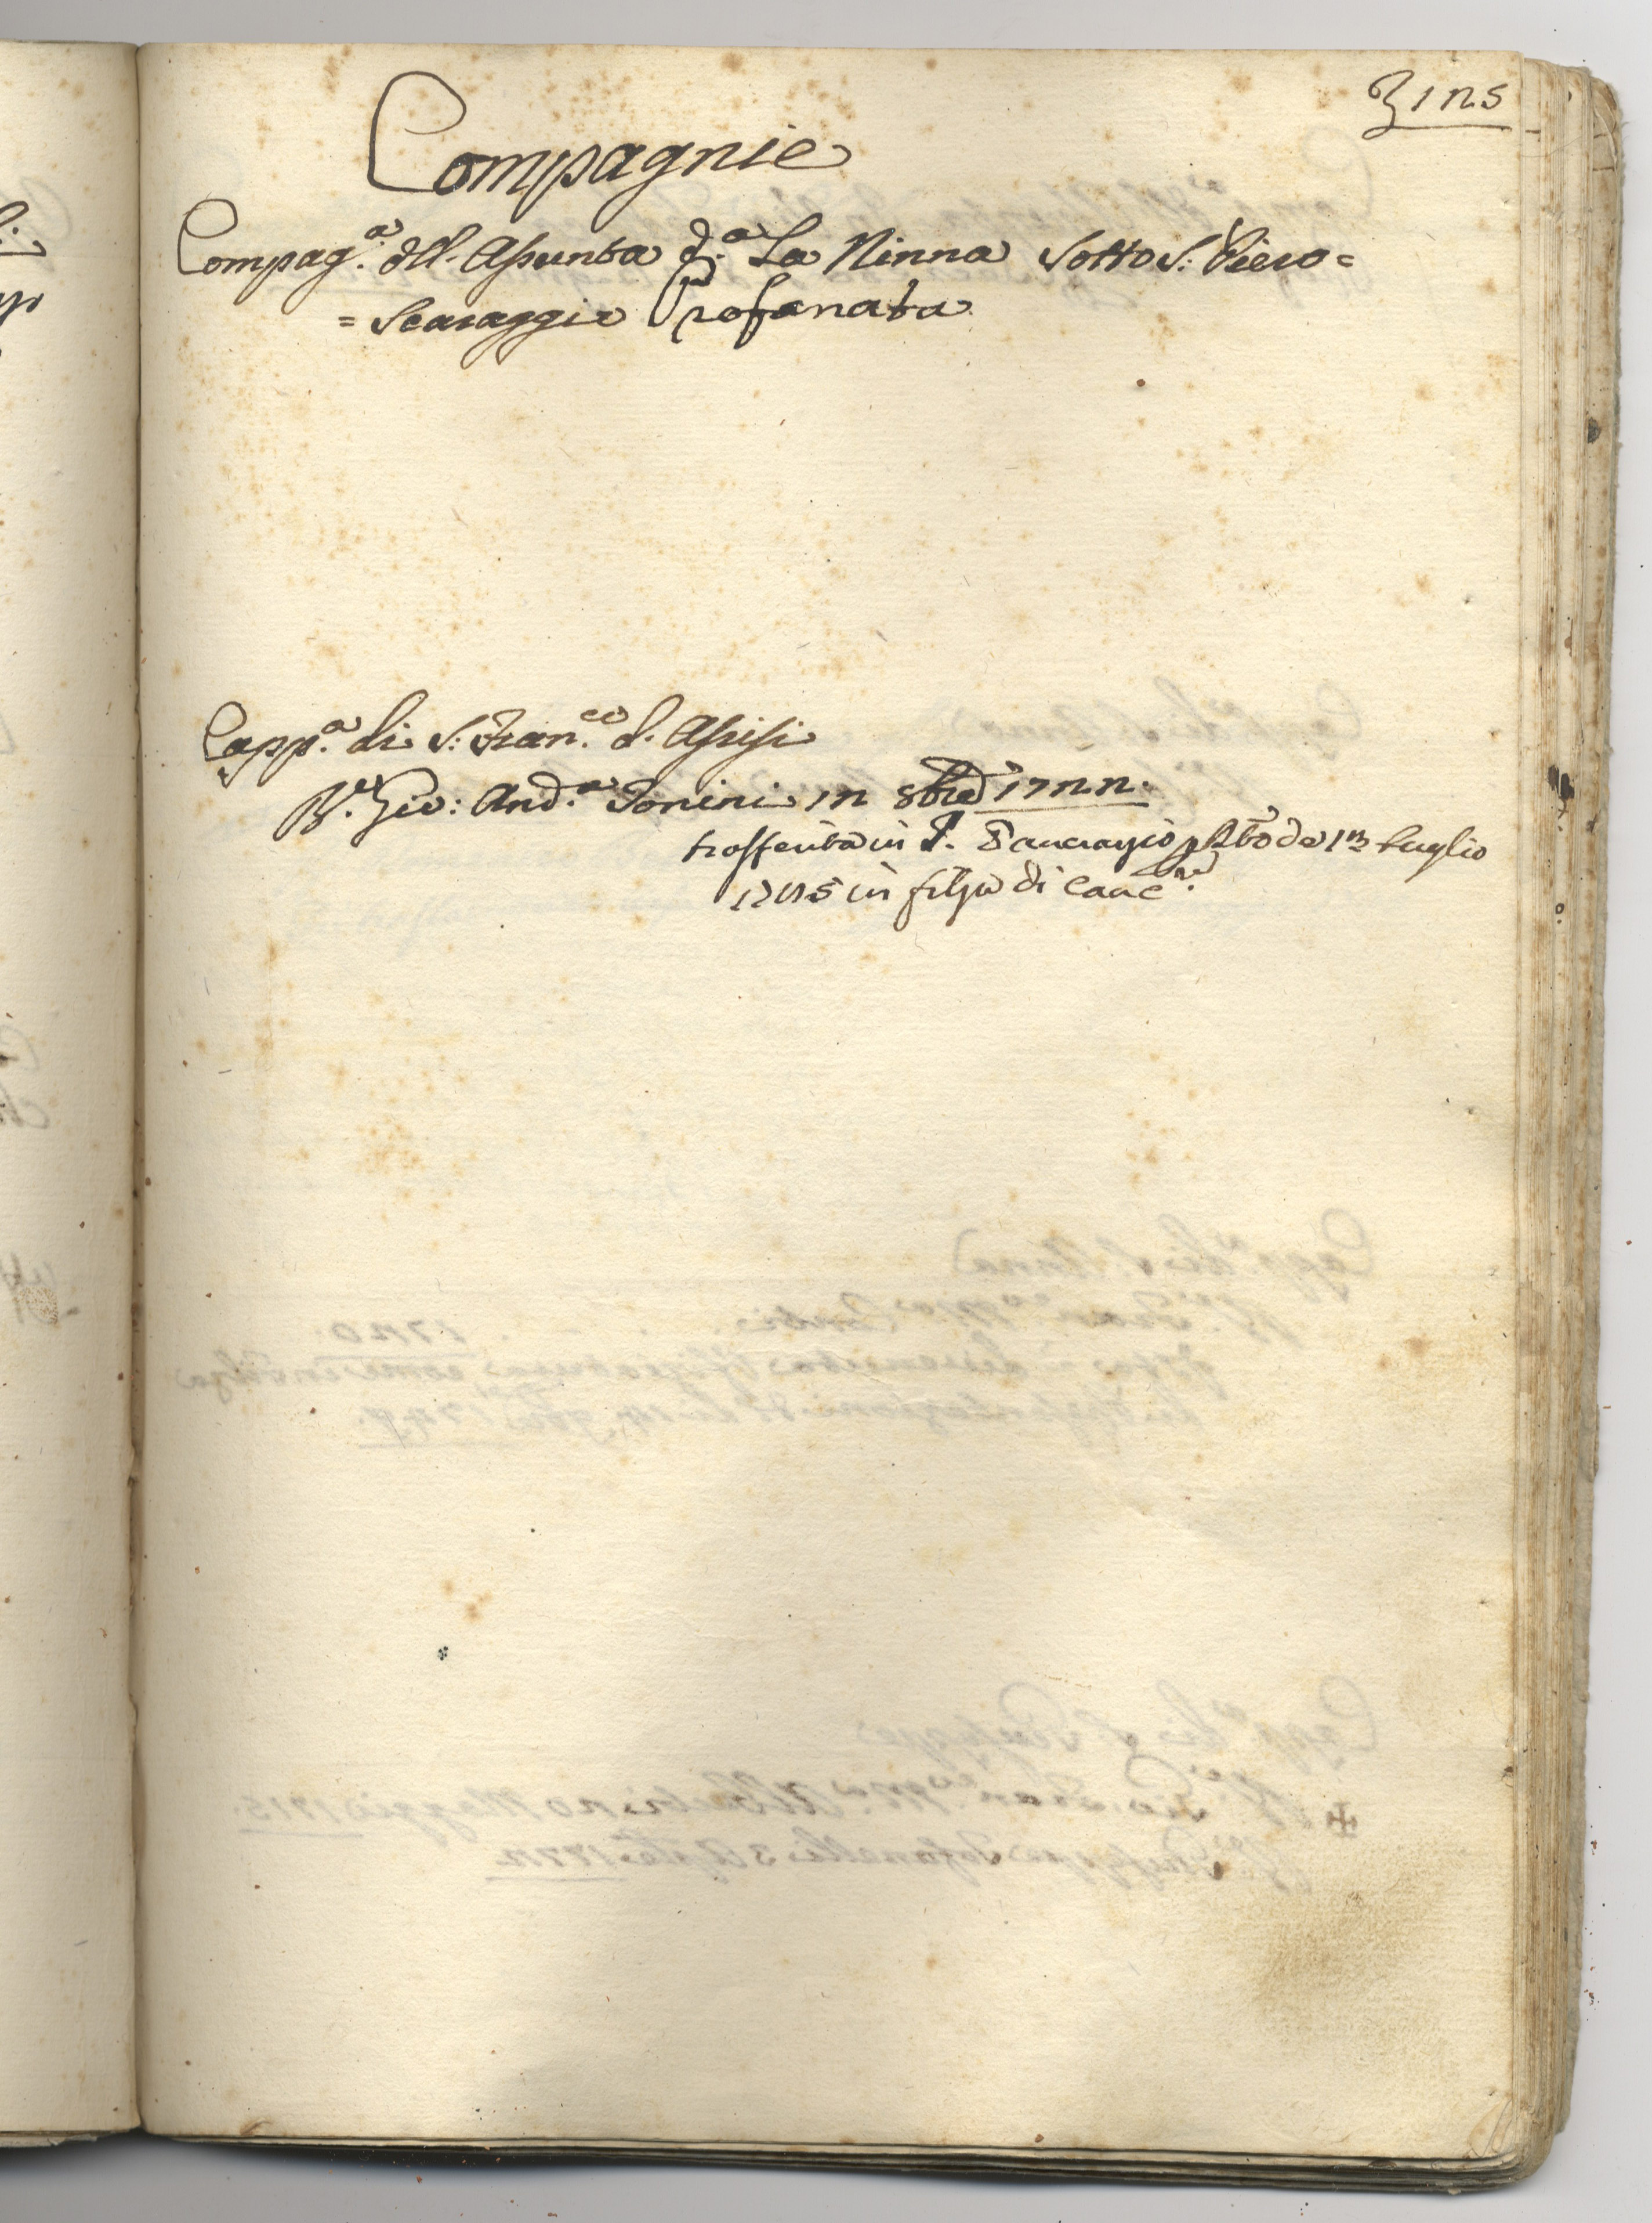 125
Compagnie
Compag.ª dll. Assunta d.ª La Ninna sotto S: Piero=
=Scaraggio Profanata
Capp.ª di S: Fran.co d. Assisi
R.e Gio: And.ª Tonini in 8bre 1722.
trasferita in S. Pancrazio p Rto de 12 Luglio
in filza di Canc.ra